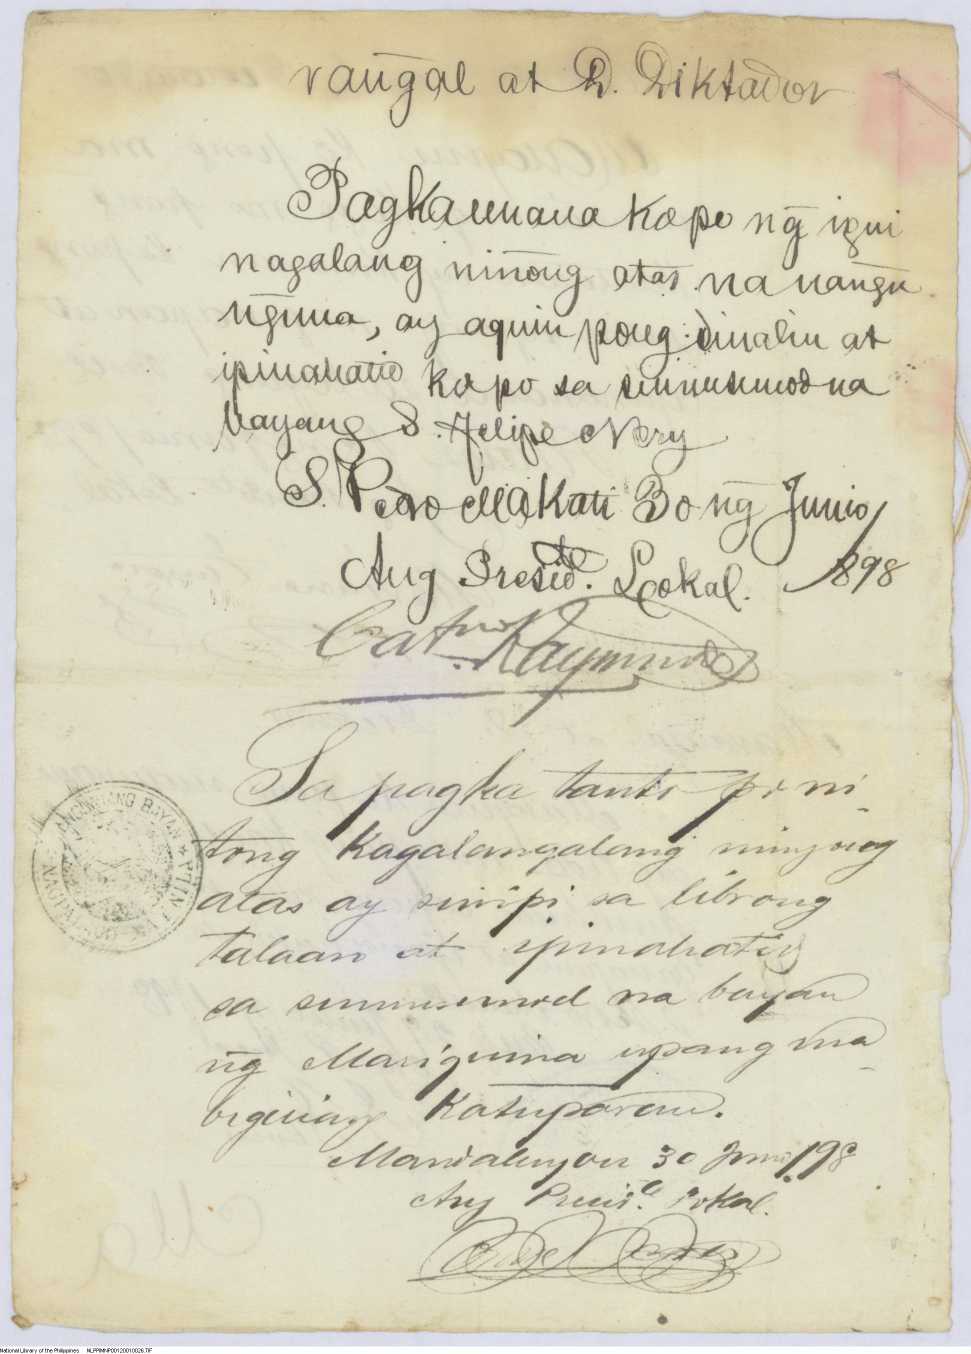 rang̃al at D. Diktador
Pagkauuaua ko po ng̃ igui
nagalang niñong atas na nang̃u
ng̃una, ay aquin pong dinaliu at
ipinahatid ko po sa sumusunod na
bayang S. Felipe Nery
S. Pedro Makati 30 ng̃ Junio
Ang Presid.te Lokal. 1898
Cat.no Raymundo
Sa pagka tanto po ni-
tong Kagalanggalang ninyong
atas ay sinipi sa librong
talaan at ipinahatid
sa sumusunod na bayan
ng̃ Mariquina upang ma-
bigiang Katuparan.
Mandaluyon 30 Junio/98
Ang Presid.te Lokal.
National Library of the Philippines NLPPIMNP00120010026.TIF